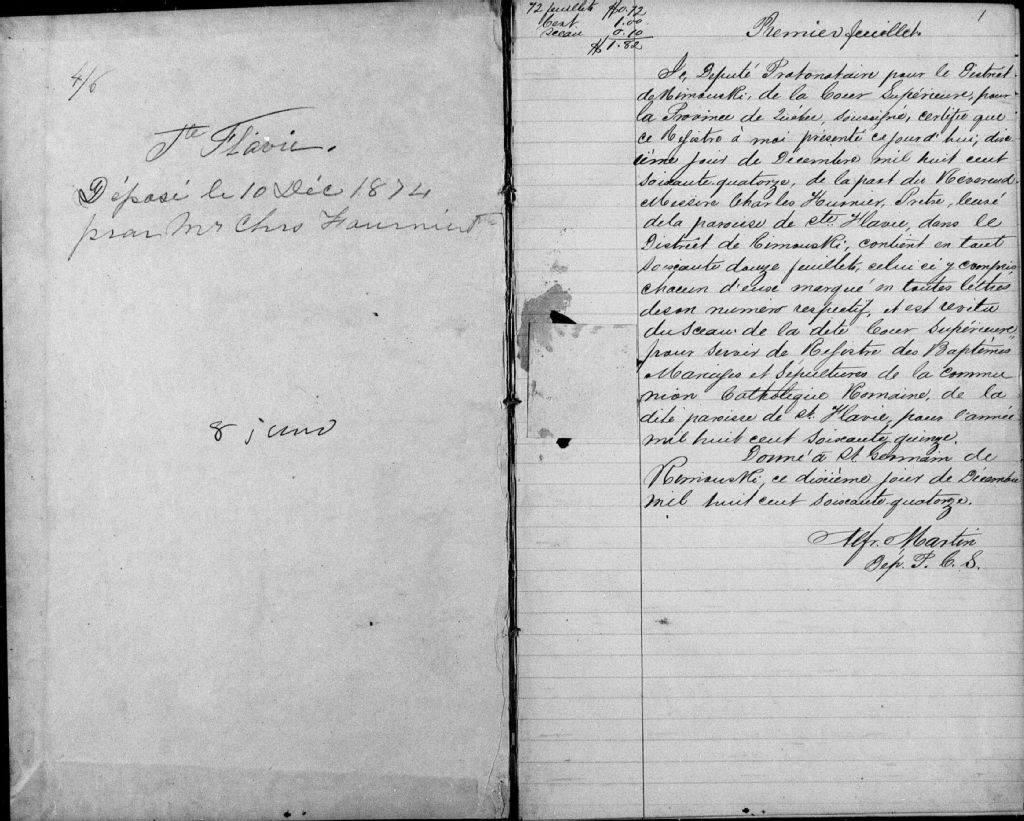 4/6
Ste Flavie.
Déposé le 10 Déc 1874
par Mr Chrs Fournier
8
72 feuillets $0.72
Cert 1.00
Sceau 0.10
$1.82
1
Premier feuillet.
Je, Deputé Protonotaire pour le District
de Rimouski, de la Cour Supérieure, pour
la Province de Québec, soussigné, certifie que
ce Registre à moi présenté cejourd'hui, dix
ième jour de Décembre mil huit cent
soixante quatorze, de la part du Révérend
Messire Charles Fournier, Prêtre, Curé
de la paroisse de Ste Flavie, dans le
District de Rimouski, contient en tout
soixante douze feuillets, celui ci y compris
chacun d'eux marqué en toutes lettres
de son numéro respectif, et est revêtu
du Sceau de la dite Cour Supérieure
pour servir de Registre des Baptêmes
Mariages et Sépultures de la commu
nion Catholique Romaine, de la
dite paroisse de St. Flavie, pour l'année
mil huit cent soixante quinze.
Donné à St. Germain de
Rimouski, ce dixième jour de Décembre
mil huit cent soixante quatorze.
Alfr. Martin
Dép. P. C. S.